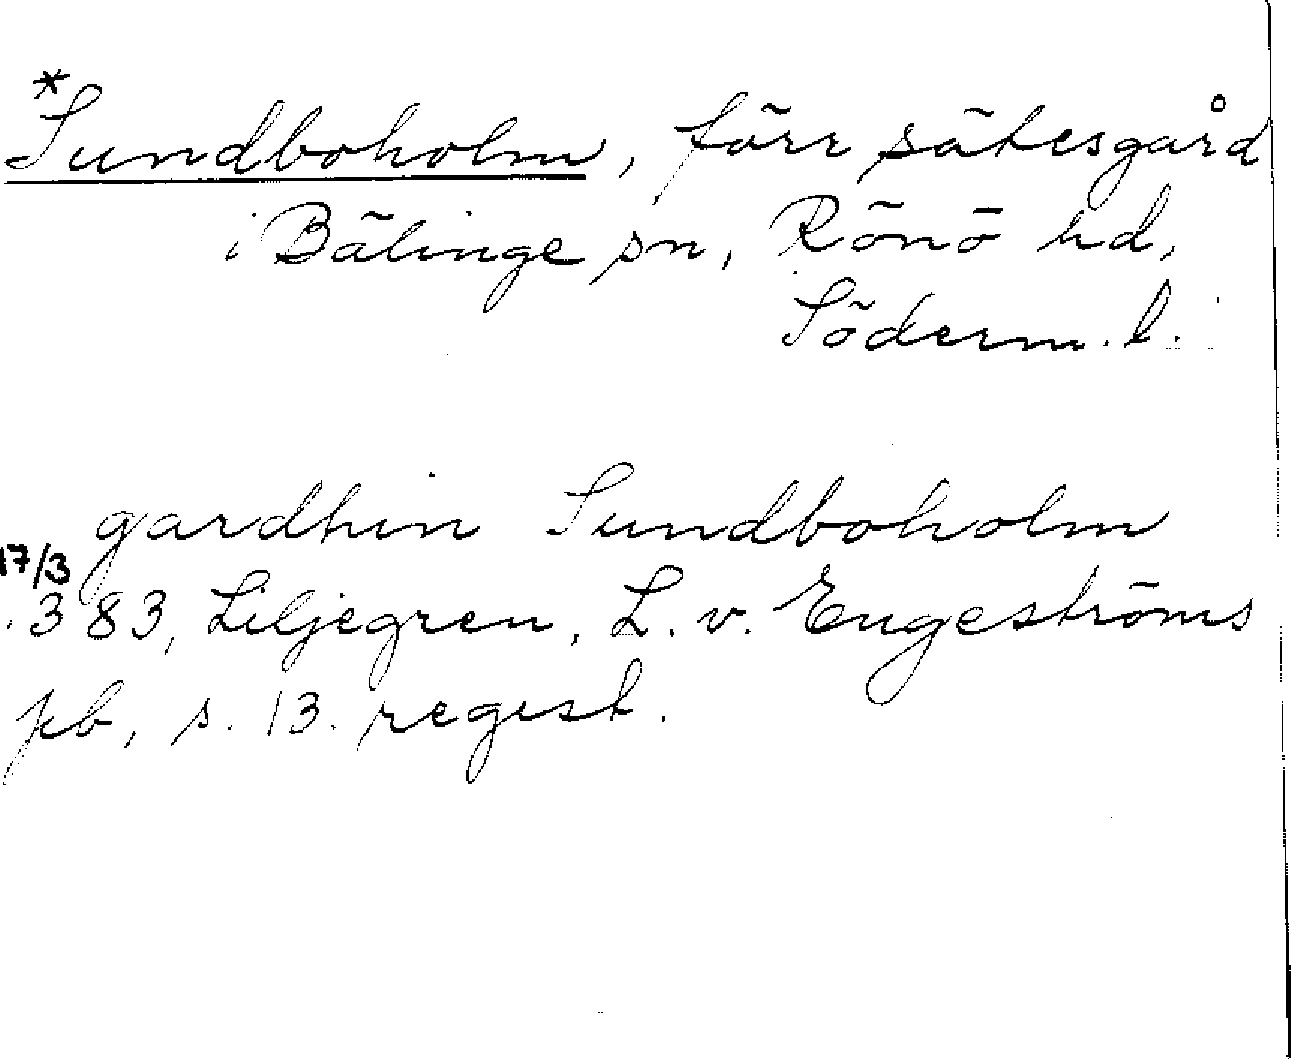 *Sundboholm, förr sätesgård
i Bälinge sn, Rönö hd,
Söderm. l.
gardhin Sundboholm
17/3
383, Liljegren, L. v. Engeströms
pb, s. 13. regest.